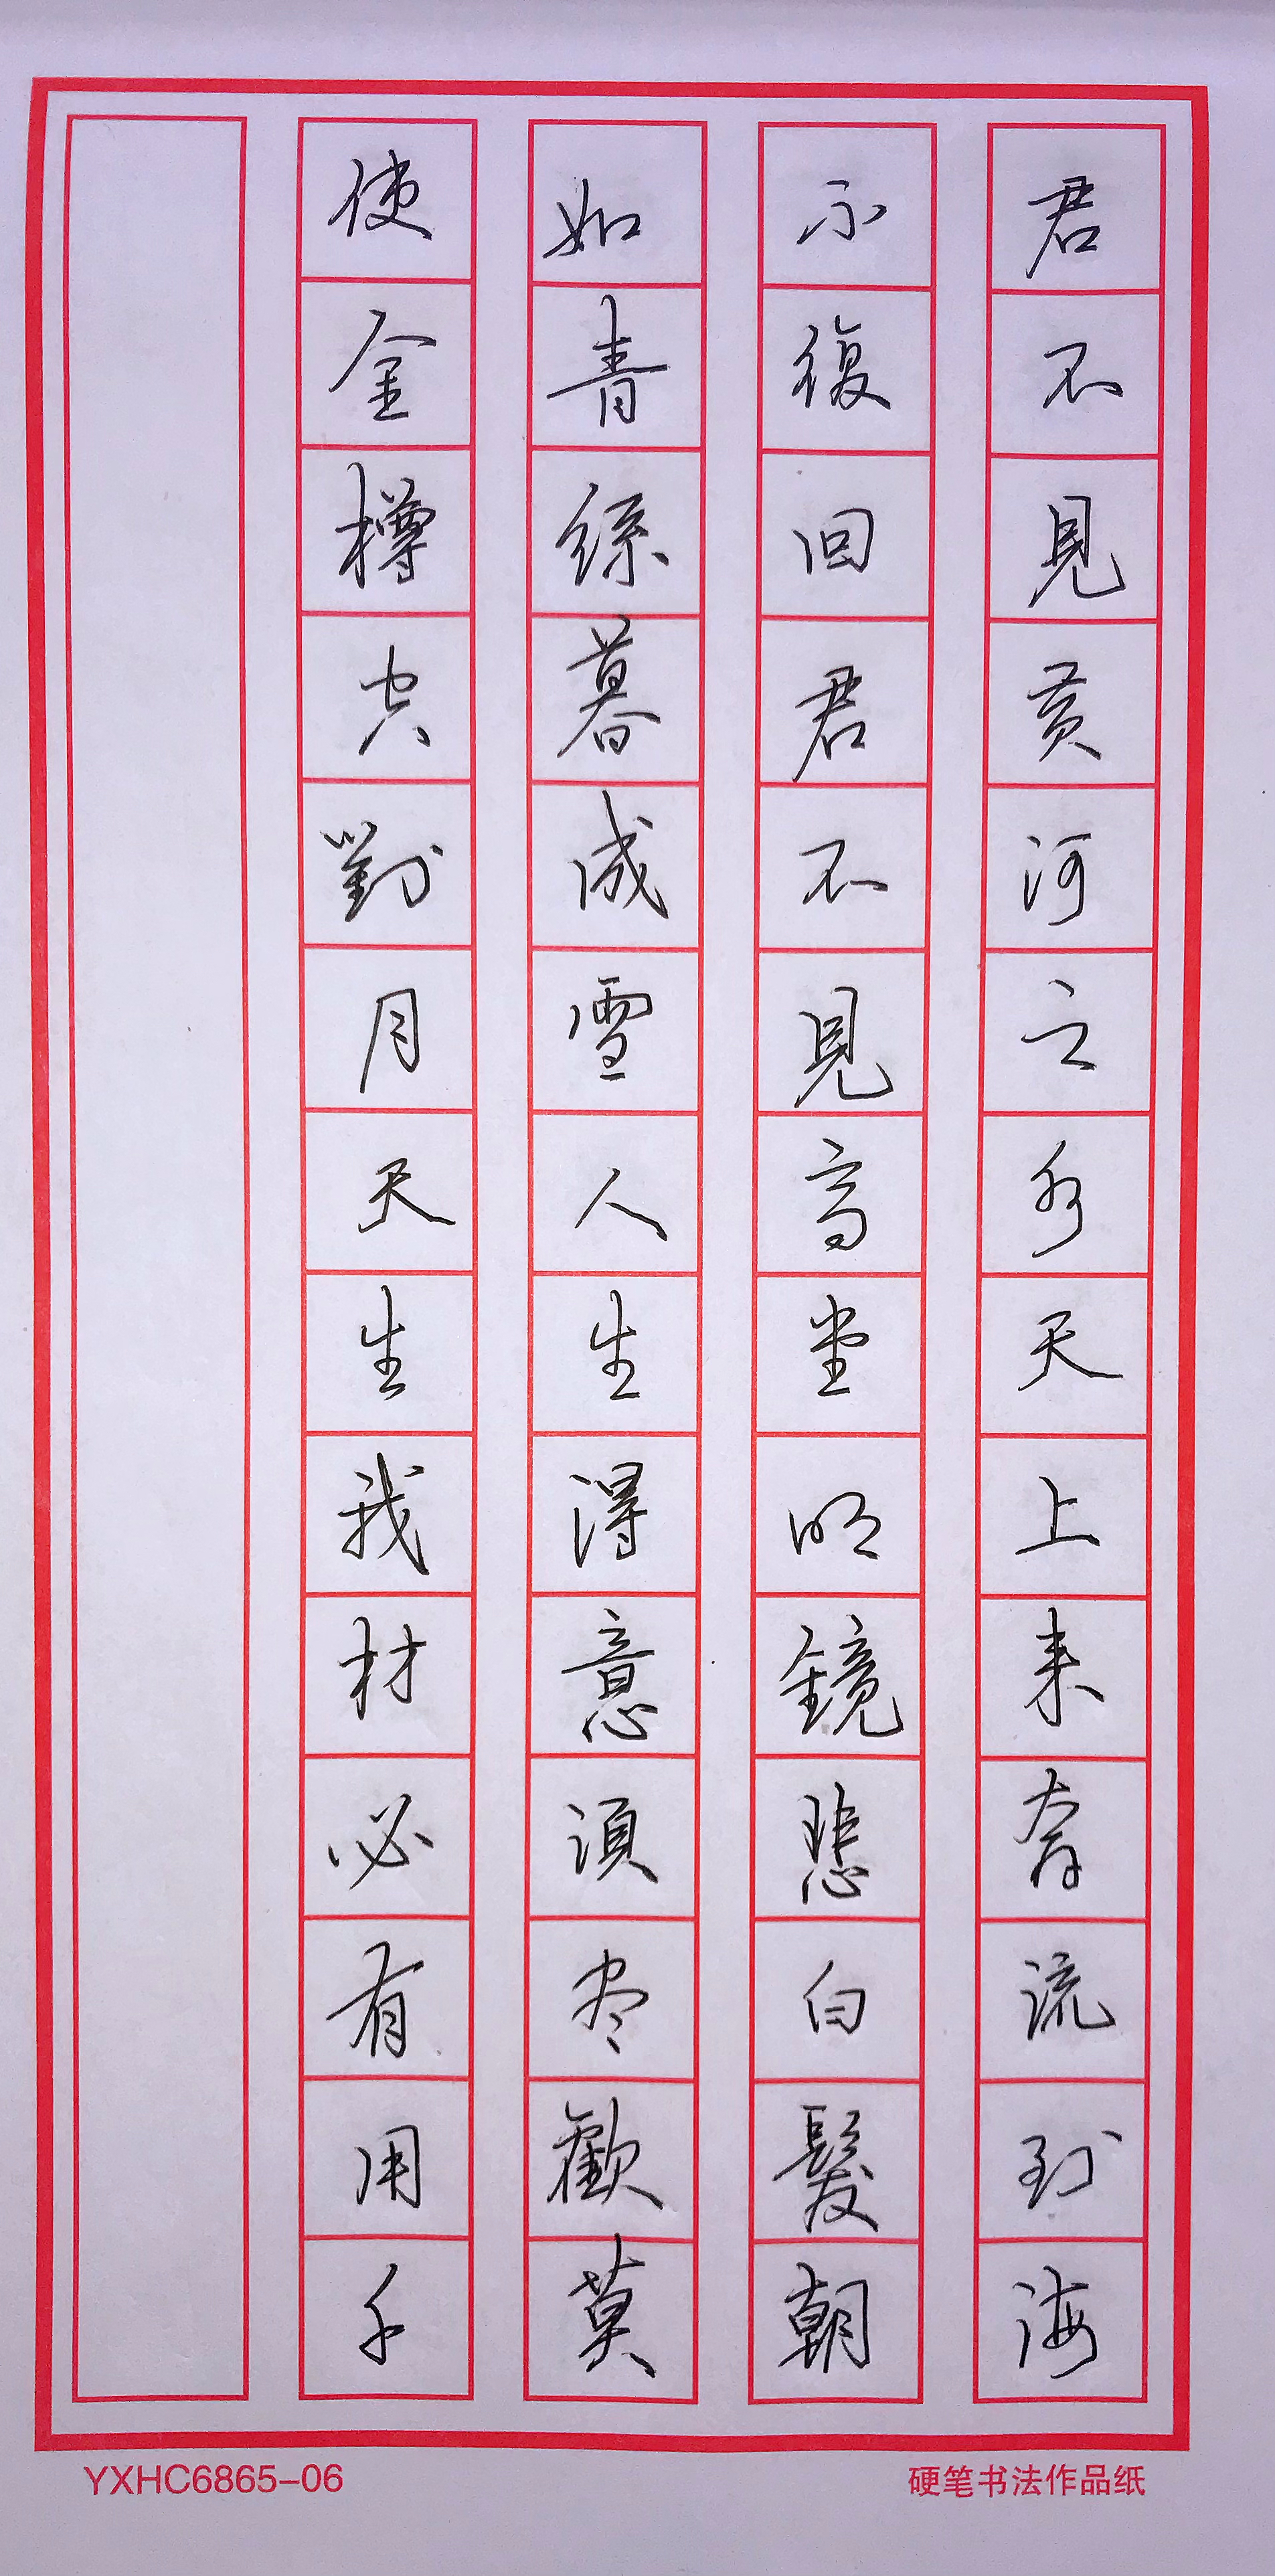 君不見黄河之水天上来奔流到海
不復回君不見高堂明鏡悲白髮朝
如青絲暮成雪人生得意須尽歡莫
使金樽空對月天生我材必有用千
YXHC6865-06
硬笔书法作品纸